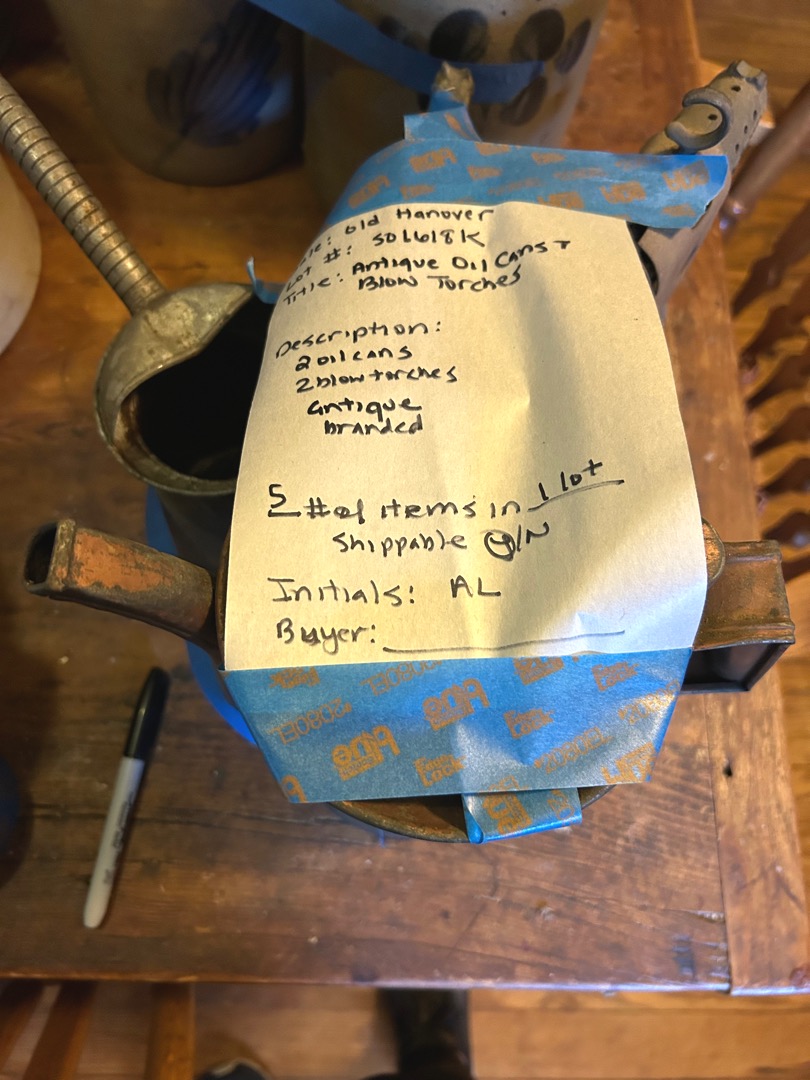 Sale: Old Hanover
Lot #: SOL618K
Title: Antique Oil Cans +
Blow Torches
Description:
2 oil cans
2 blow torches
antique
branded
5 # of items in 1 lot
Shippable Y/N
Initials: AL
Buyer:
2080EL
2080EL
Edge
Lock
2080EL